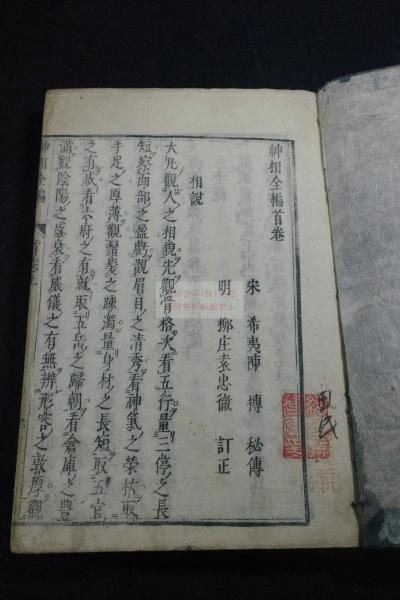 神相全編首巻
宋 希夷陳 摶 秘傳
明 柳庄袁忠徹 訂正
相說
大凡觀人之相貌先觀骨格次看五行量三停之長
短察面部之盈虧觀眉目之清秀看神氣之榮枯取
手足之厚薄觀鬚髮之疎濁量身材之長短取五官
之有成看六府之有就取五岳之歸朝看倉庫之豊
滿觀陰陽之盛衰看威儀之有無辨形容之敦厚觀
神相全編
田氏